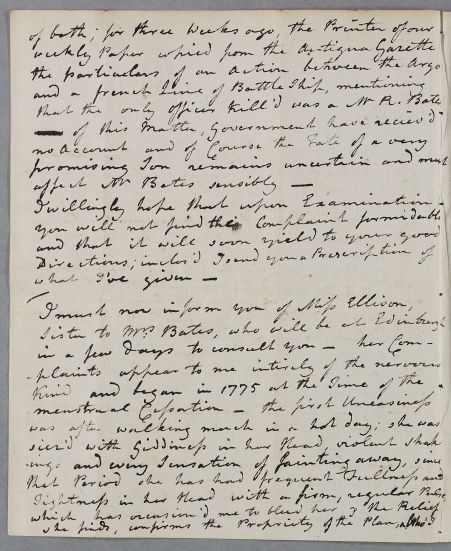 of both; for three Weeks ago, the Printer of our
weekly Paper copied from the Antigua Gazette
the particulars of an Action between the Argo
and a french Line of Battle Ship, mentioning
that the only officer kill'd was a Mr R. Bates
— of this Matter, Government have reciev'd
no Account and of Course the Fate of a very
promising Son remains uncertain and must
affect Mr Bates sensibly —
I willingly hope that upon Examination
you will not find the Complaint formidable
and that it will soon yield to your good
Directions; inclos'd I send you a Prescription of
what I've given —
I must now inform you of Miss Ellison,
Sister to Mrs Bates, who will be at Edinburgh
in a few Days to consult you — her Com-
-plaints appear to me intirely of the nervous
Kind and began in 1775 at the Time of the
menstrual Cessation — the first Uneasiness
was after walking much in a hot day; she was
siez'd with Giddiness in her Head, violent Shak
ings and every Sensation of fainting away, since
that Period she has had frequent Fullness and
Tightness in her Head with a firm, regular Pulse,
which has occasion'd me to bleed her & the Relief
She finds, confirms the Propriety of the Plan,